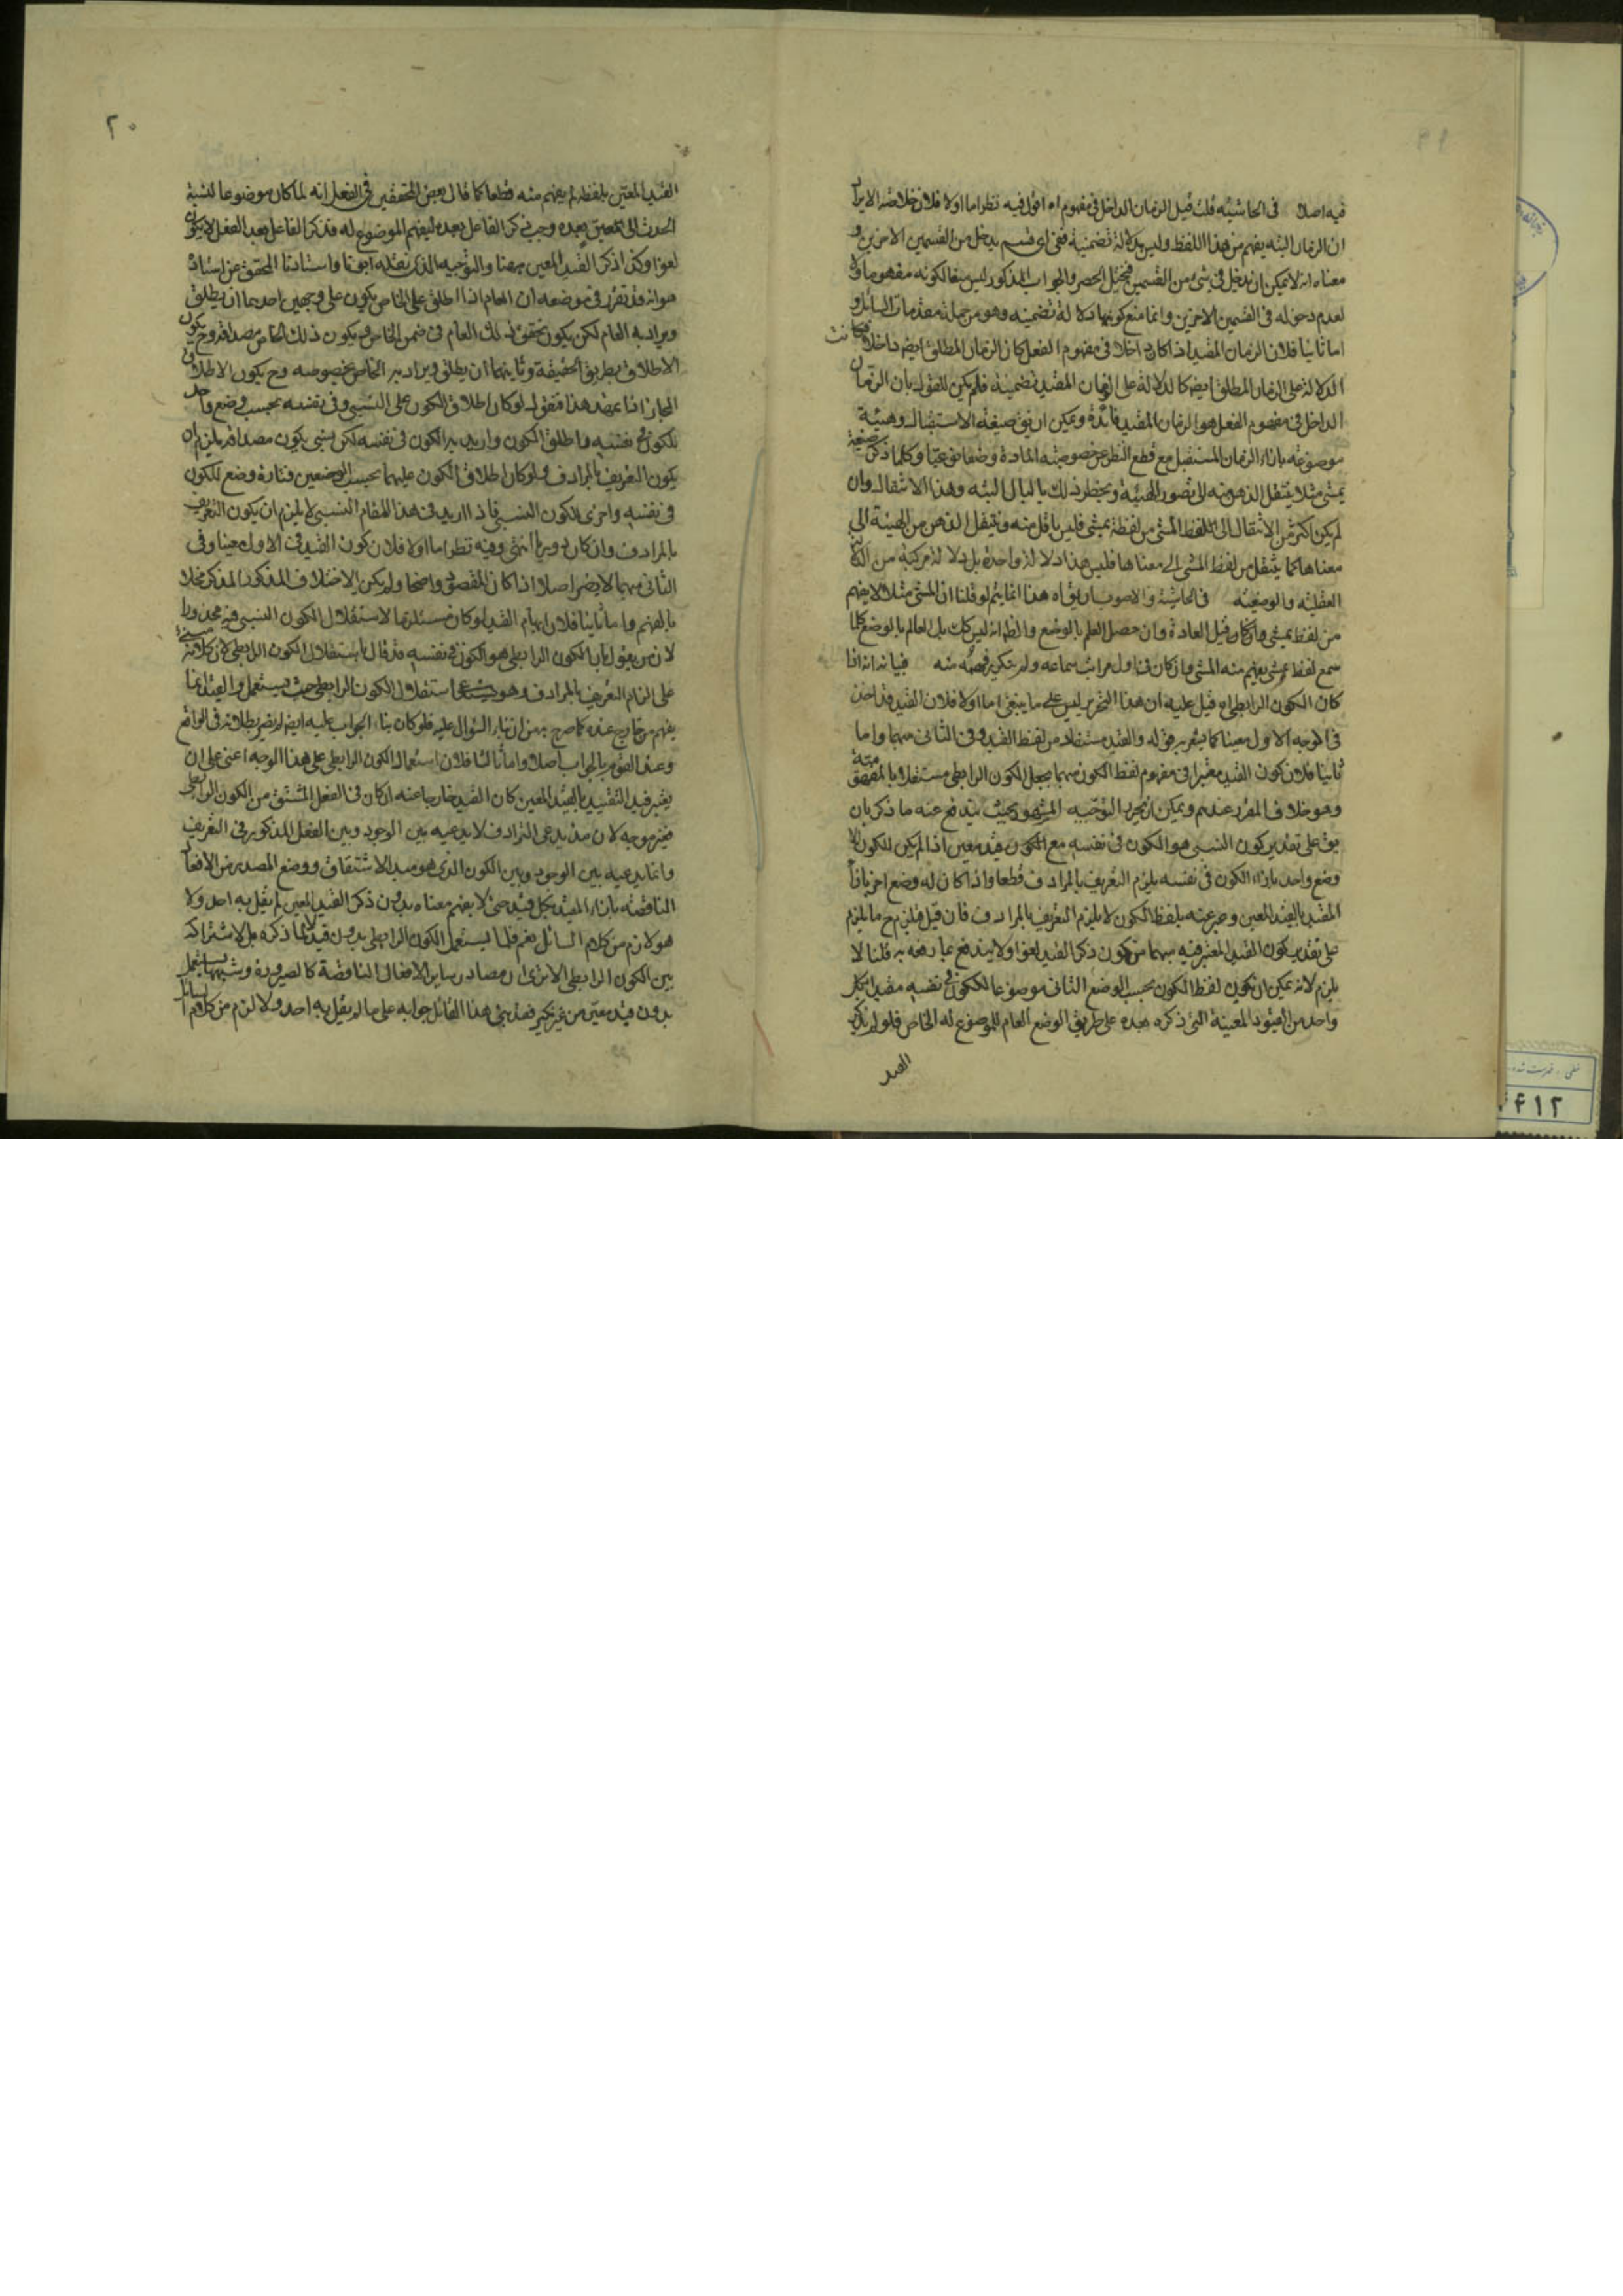 فيه اصلا في الحاشيه قلت قيل الزمان الداخل في مفهوم اه اقول فيه نظر اما اولا فلان خلاصه الايراد
ان الزمان البته يفهم من هذا اللفظ وليس بدلالة تضمنية ففي اي قسم يدخل من القسمين الاخرين و
معناه انه لا يمكن ان يدخل في شئ من القسمين فيختل الحصر والجواب المذكور ليس
لعدم دخوله في القسمين الاخرين وانما منع كونهما دلالة تضمنيه وهو من جملة مقدمات السائل و
اما ثانيا فلان الزمان المقيد اذا كان داخلا في مفهوم الفعل كان الزمان المطلق ايضا داخلا فكانت
الدلالة على الزمان المطلق ايضا كالدلالة على الزمان المقيد تضمنية فلم يكن للقول بان الزمان
الداخل في مفهوم الفعل هو الزمان المقيد فائدة ويمكن ان يق صيغة الاستقبال وهيئة
موضوعه بازاء الزمان المستقبل مع قطع النظر عن خصوصيته المادة وضعا نوعيا وكلما ذكر صيغة
يمشي مثلا ينتقل الذهن منه الى تصور الهيئة ويخطر ذلك بالبال البته وهذا الانتقال وان
لم يكن اكثر من الانتقال الى لفظ المشي من لفظة يمشي فليس باقل منه وينتقل الذهن من الهيئة الى
معناها كما ينتقل من لفظ المشي الى معناها فليس هذا دلالة واحدة بل دلالة مركبة من
العقلية والوضعيه في الحاشية والاصوب ان يق اه هذا انما يتم لو قلنا ان المشي مثلا لا يفهم
من لفظ يمشي وان كان قبل العادة وان حصل العلم بالوضع والظ انه ليس كك بل العالم بالوضع كلما
سمع لفظ يمشي يفهم منه المشي وان كان في اول مراتب سماعه ولم يتكرر فهمه منه فبيانه انه اذا
كان الكون الرابطي اه قيل عليه ان هذا التحرير ليس على ما ينبغي اما اولا فلان القيد قد اخذ
في الوجه الاول معينا كما يشعر به قوله والقيد مستفاد من لفظ القيد وفي الثاني مبهما واما
ثانيا فلان كون القيد معتبرا في مفهوم لفظ الكون مبهما يجعل الكون الرابطي مستقلا بالمفهومية
وهو خلاف المقرر عندهم ويمكن ان يحرر التوجيه المشهور بحيث يندفع عنه ما ذكر بان
يق على تقدير كون النسبي هو الكون في نفسه مع الكون بقيد معين اذا لم يكن للكون الا
وضع واحد بازاء الكون في نفسه يلزم التعريف بالمرادف قطعا واذا كان له وضع اخر بازاء
المقيد بالقيد المعين وضرعيته بلفظ الكون لا يلزم التعريف بالمرادف فان قيل فيلزم ح ما يلزم
على تقدير كون القيد المعتبر فيه مبهما من كون ذكر القيد لغوا ولا يندفع قلنا لا
يلزم لانه يمكن ان يكون لفظ الكون بحسب الوضع الثاني موضوعا للكون في نفسه مقيدا بكل
واحد من القيود المعينة التي ذكره بعده على طريق الوضع العام للموضوع له الخاص فلو لم يذكر
القيد
٢٠
القيد المعين بلفظه لم يفهم منه قطعا كما قال بعض المحققين في الفعل انه لما كان موضوعا لنسبة
الحدث الى معين بعده وجب ذكر الفاعل بعده ليفهم الموضوع له فذكر الفاعل بعد الفعل لا يكون
لغوا وكذا ذكر القيد المعين ههنا والتوجيه الذي نقله آنفا واستادنا المحقق عن استاذ
هو انه قد تقرر في موضعه ان العام اذا اطلق على الخاص يكون على وجهين احدهما ان يطلق
ويراد به العام لكن يكون تحقق ذلك العام في ضمن الخاص ويكون ذلك الخاص مصداقه وح يكون
الاطلاق بطريق الحقيقة وثانيهما ان يطلق ويراد به الخاص بخصوصه وح يكون الاطلاق
المجاز اذا تمهد هذا فنقول لو كان اطلاق الكون على النسبي وفي نفسه بحسب وضع واحد
للكون في نفسه واطلق الكون واريد به الكون في نفسه لكن النسبي يكون مصداقه يلزم ان
يكون التعريف بالمرادف ولو كان اطلاق الكون عليهما بحسب الوضعين فتارة وضع للكون
في نفسه واخرى للكون النسبي فاذا اريد في هذا المقام النسبي لا يلزم ان يكون التعريف
بالمرادف وان كان دوريا انتهى وفيه نظر اما اولا فلان كون القيد في الاول معينا وفي
الثاني مبهما لا يضر اصلا اذا كان المقصود واضحا ولم يكن الاختلاف المذكور مخلا
بالفهم واما ثانيا فلان ابهام القيد لو كان مستلزما لاستقلال الكون النسبي فيه محذورا
لان من يقول بان الكون الرابطي هو الكون في نفسه قد قال باستقلال الكون الرابطي لان كلامه مبني
على الزام التعريف بالمرادف وهو استقلال الكون الرابطي حيث يستعمل والقيد انما
يفهم من خارج عنده كما صرح به من ان بناء السؤال عليه فلو كان بناء الجواب عليه ايضا لم يضر بطلانه في الواقع
وعند القوم بالجواب اصلا واما ثالثا فلان استعمال الكون الرابطي على هذا الوجه اعني على ان
يعتبر فيه التقييد بالقيد المعين كان القيد خارجا عنه او كان في الفعل المشتق من الكون الرابطي
فغير موجه لان مدعي الترادف لا يدعيه بين الوجود وبين الفعل المذكور في التعريف
وانما يدعيه بين الوجود وبين الكون الذي هو مبدا الاشتقاق ووضع المصدر من الافعال
الناقصه بازاء المقيد بكل قيد حتى لا يفهم معناه بدون ذكر القيد المعين لم يقل به احد ولا
هو لازم من كلام السائل نعم قلما يستعمل الكون الرابطي بدون قيد لا لما ذكره بل لاشتراكه
بين الكون الرابطي الا ترى ان مصادر ساير الافعال الناقصة كالصيرورة وشبهها يستعمل
بدون قيد معين من غير نكير فقد بنى هذا القائل جوابه على ما لم يقل به احد ولا لزم من كلام السائل